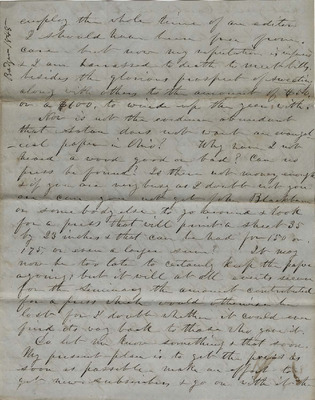 employ the whole time of an editor
I should have been free from
care but now my reputation is
& I am harassed to death to
besides the glorious prospect of sweating
along with others to the amount of
or a $100, to wind up the year with.
Nor is not the evidence abundant
that Satan does not want an evangel-
ical paper in Ohio? Why have I not
heard a word good or bad? Can no
press be found? Is there not money enough
& if you are
can you not get John
or somebody else to go around & look
for a press that will print a sheet 35
by 23 inches & that can be had for 150 or
175 or some longer sum? It may
now be too late to certainly keep the paper
agoing; but it will at all events secure
for the Seminary the amount contributed
for a press which would otherwise be
lost for I doubt whether it could ever
find its way back to those who gave it.
So let me know something & that soon.
My present plan is to get the press as
soon as possible make an effort to
get new subscribers & go on with it the